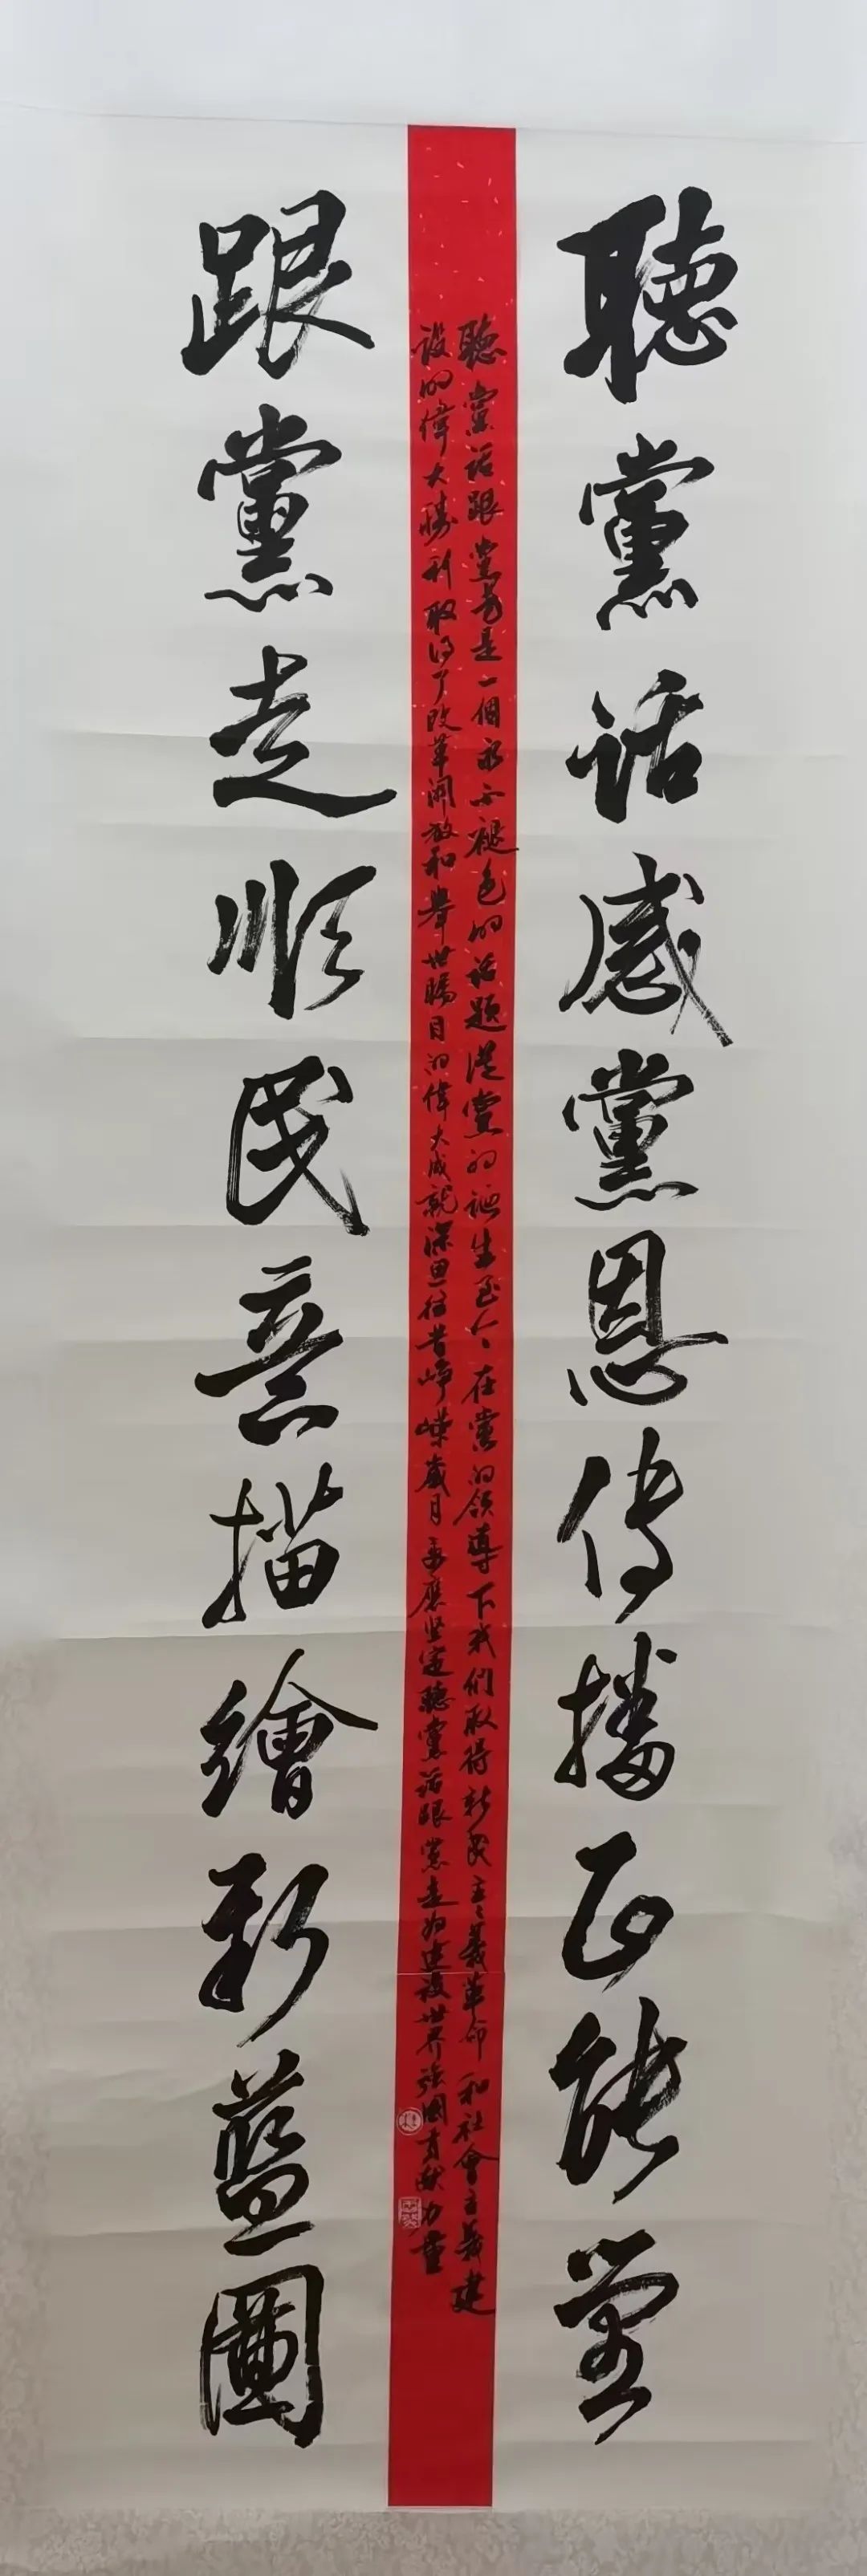 聽黨話感黨恩傳播正能量
聽黨話跟黨走是一個永不褪色的話題從黨的誕生至今在黨的領導下我們取得新民主主義革命和社會主義建
設的偉大勝利取得了改革開放和舉世矚目的偉大成就深思往昔崢嶸歲月更應堅定聽黨話跟黨走為建設世界強國貢獻力量
跟黨走順民意描繪新藍圖